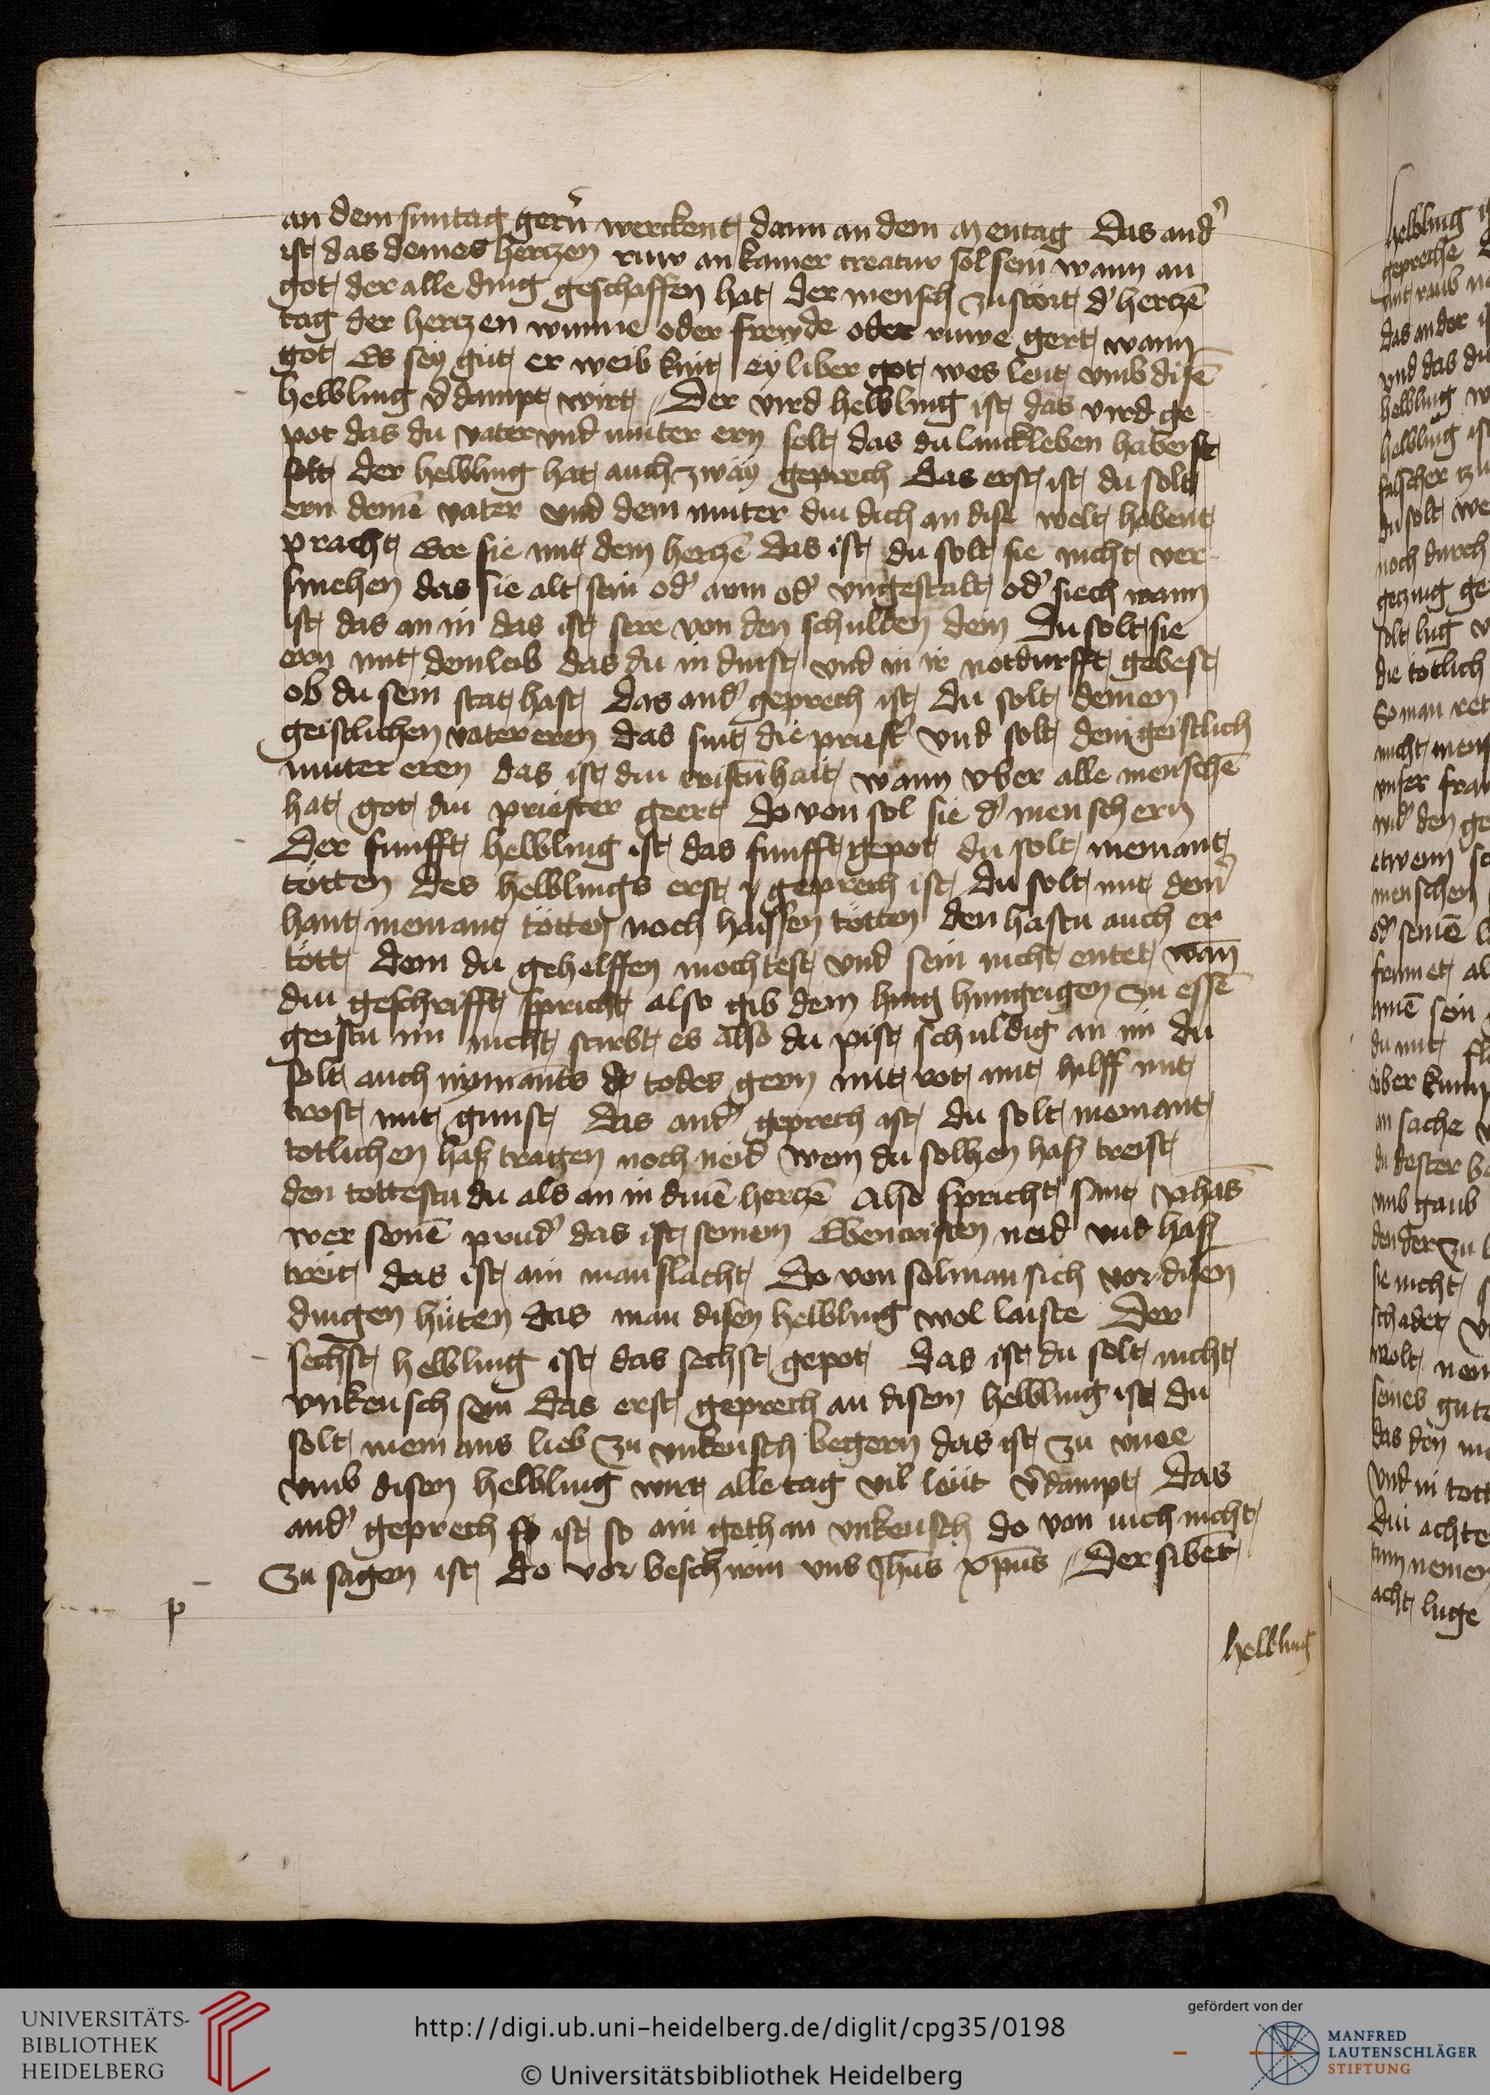 an dem suntag gern̄ werckent dann an dem mentag Das and'
ist das deines hertzen ruw an kainer creatur sol sein wann an
got der alle ding geschaffen hat der mensch zustört d' hertzē
tag der hertzen wunne oder frewde oder ruwe gert wann
got Es sey gut er weib kint ey liber got wes leut vmb disē
helbling v'dampt wirt Der vird helbling ist das vird ge
pot das du vater vnd muter ern solt das du lanckleben habest
solt der helbling hat auch zway geprech das erst ist du solt
ern deinē vater vnd dein muter diu dich an dise welt habent
pracht Ere sie mit dem hertzē das ist du solt sie nicht ver
smehen das sie alt sein od' arm od' vngestalt od' siech wann
ist das an in das ist sere von den schulden dein Du solt sie
eren mit dem leib das du in dinst vnd in ir notdurfft gebest
ob du sein stat hast Das and' geprech ist du solt deinen
geistlichen vater eren das sint die priest' vnd solt dein geistlich
muter eren das ist diu cristēhait wann vber alle menschē
hat got diu priester geert do von sol sie d' mensch ern
Der funfft helbling ist das funfft gepot du solt niemant
tötten des helblings erst geprech ist du solt mit dein'
hant niemant tötten noch haissen tötten den hastu auch er
tött dem du gehelffen mochtest vnd sein nicht entet wan̄
diu geschrifft spricht also gib dem hung hungrigen zu essē
geistu im nicht stirbt es also du pist schuldig an im du
solt auch nymants do todes gern mit rot mit hilff mit
trost mit gunst Das and' geprech ist du solt niemant
totlichen haß tragen noch neid wem du solhen haß treist
den tottestu du als an in dinē hertzē Also spricht sant Johās
wer seinē prud' das ist seinem Ebencristen neid vnd haß
treit das ist ain manslacht Do von sol man sich vor disen
dingen hüten das man disen helbling wol laiste Der
sechst helbling ist das sechst gepot Das ist du solt nicht
vnkeusch sein das erst geprech an disem helbling ist du
solt niemans lieb zu vnkeusch begern das ist zu vnee
vmb disen helbling wirt alle tag vil leüt v'dampt Das
and' geprech so ist so ain gethan vnkeusch do von nich nicht
zu sagen ist do vor beschirm vns Jhūs xp̄us Der sibent
p
helbling
UNIVERSITÄTS-
BIBLIOTHEK
HEIDELBERG
http://digi.ub.uni-heidelberg.de/diglit/cpg35/0198
© Universitätsbibliothek Heidelberg
gefördert von der
MANFRED
LAUTENSCHLÄGER
STIFTUNG